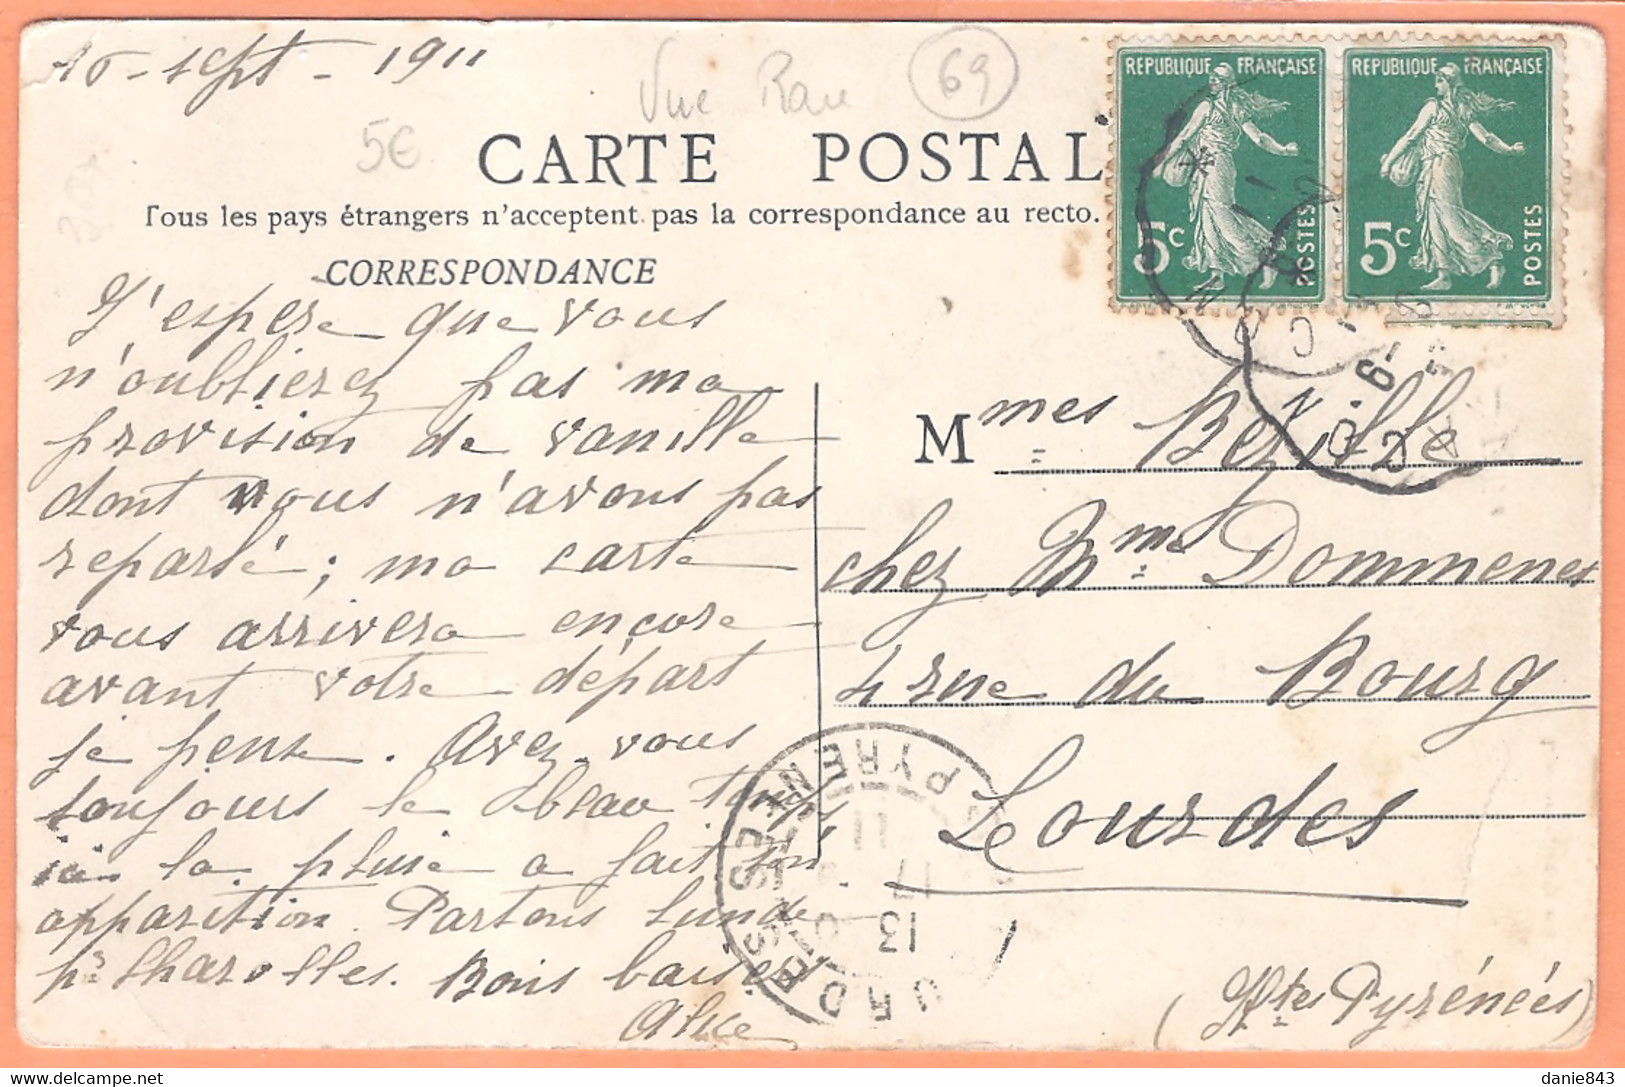 16 - sept - 1911
Vue Rare
69
5€
CARTE POSTAL
Tous les pays étrangers n'acceptent pas la correspondance au recto.
CORRESPONDANCE
J'espère que vous
n'oublierez pas ma
provision de vanille
dont nous n'avons pas
reparlé ; ma carte
vous arrivera encore
avant votre départ
je pense. Avez-vous
toujours le beau temps
ici la pluie a fait son
apparition. Partons lundi
pr Charolles. Bons baisers
Alice
REPUBLIQUE FRANÇAISE
5c
POSTES
REPUBLIQUE FRANÇAISE
5c
POSTES
Mmes Bezille
chez Mme Dommenes
4 rue du Bourg
Lourdes
(Htes Pyrénées)
LOURDES
PYRENEES
13
17
11
danie843